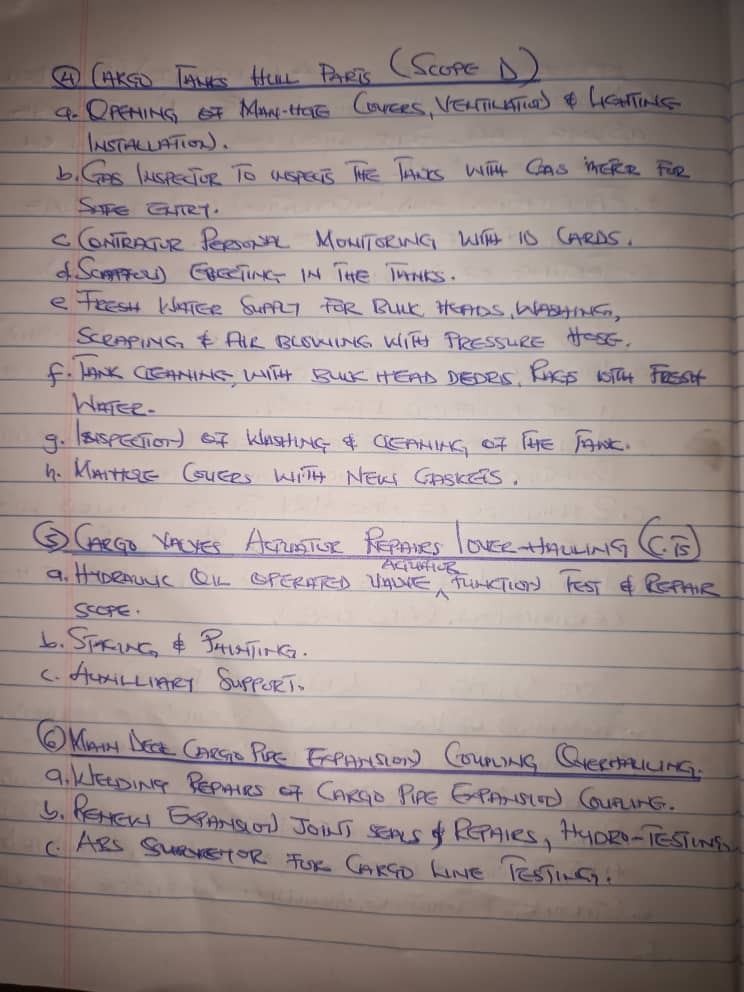 ④ CARGO TANKS HULL PARTS (SCOPE D)
a. OPENING OF MAN-HOLE COVERS, VENTILATION & LIGHTING
INSTALLATION.
b. GAS INSPECTOR TO INSPECTS THE TANKS WITH GAS METER FOR
SAFE ENTRY.
c CONTRACTOR PERSONAL MONITORING WITH ID CARDS.
d. SCAFFOLD ERECTING IN THE TANKS.
e FRESH WATER SUPPLY FOR BULK HEADS, WASHING,
SCRAPING & AIR BLOWING WITH PRESSURE HOSE.
f. TANK CLEANING, WITH BULK HEAD DEDRIS, RAGS WITH FRESH
WATER.
g. INSPECTION OF WASHING & CLEANING OF THE TANK.
h. MANHOLE COVERS WITH NEW GASKETS.
⑤ CARGO VALVES ACTUATOR REPAIRS / OVER-HAULING
a. HYDRAULIC OIL OPERATED VALVE ACTUATOR, FUNCTION TEST & REPAIR
SCOPE.
b. & PAINTING.
c. AUXILLIARY SUPPORT.
⑥ MAIN DECK CARGO PIPE EXPANSION COUPLING OVERHAULING.
a. WELDING REPAIRS OF CARGO PIPE EXPANSION COUPLING.
b. RENEW EXPANSION JOINT SEALS & REPAIRS, HYDRO-TESTING
c. ABS SURVEYOR FOR CARGO LINE TESTING.